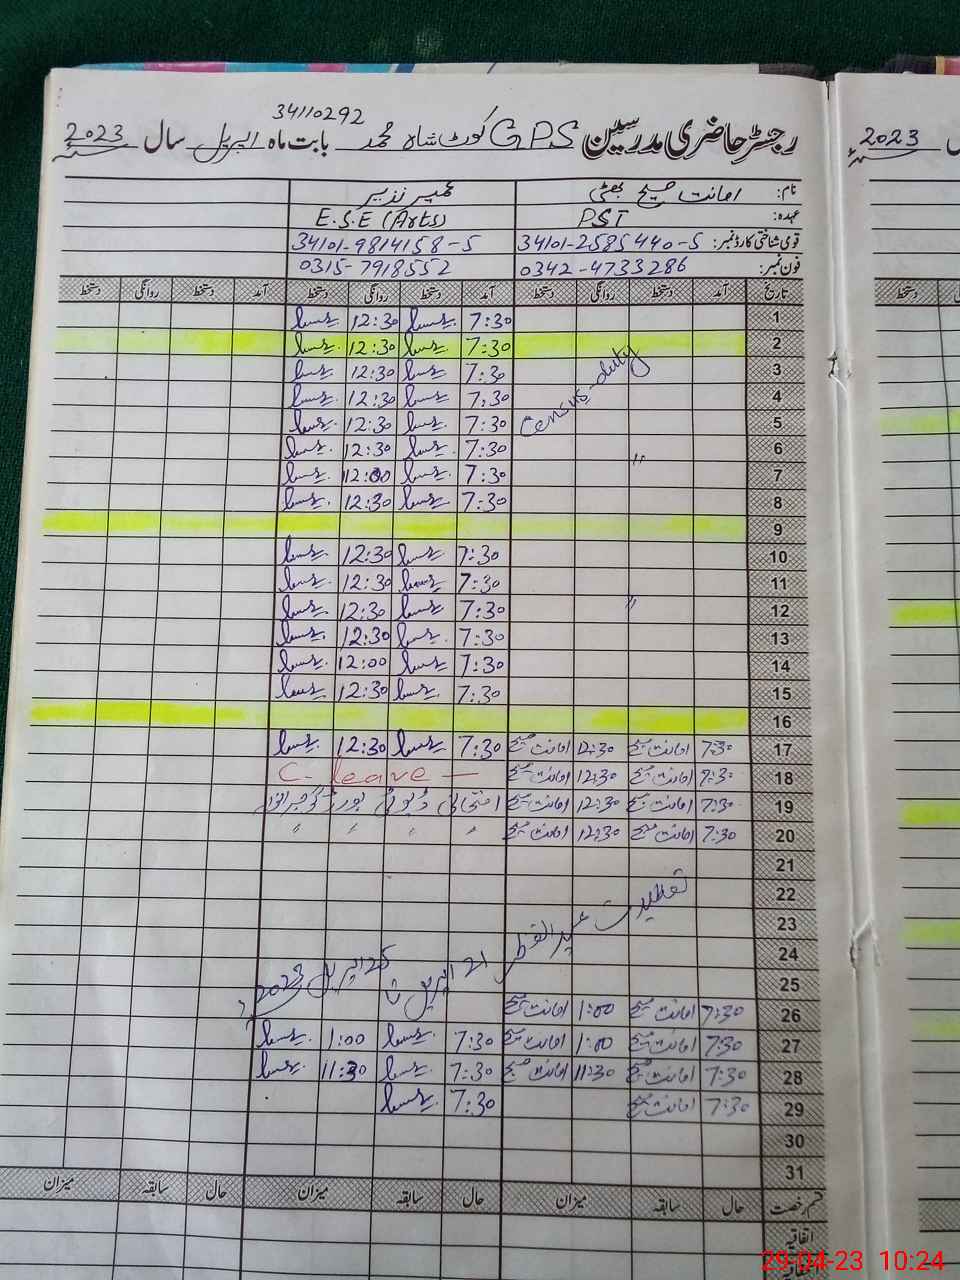 34110292
رجسٹر حاضری مدرسین GPS کوٹ شاہ محمد بابت ماہ اپریل سال 2023
2023
نام: امانت مسیح بھٹی
عہدہ: PST E.S.E (Arts)
قومی شناختی کارڈ نمبر: 34101-2585440-5 34101-9814158-5
فون نمبر: 0342-4733286 0315-7918552
تاریخ آمد دستخط روانگی دستخط آمد دستخط روانگی دستخط آمد دستخط روانگی دستخط
دستخط
1 7:30 12:30
2 7:30 12:30
3 Census-duty 7:30 12:30
4 7:30 12:30
5 7:30 12:30
6 " 7:30 12:30
7 7:30 12:00
8 7:30 12:30
9
10 7:30 12:30
11 7:30 12:30
12 " 7:30 12:30
13 7:30 12:30
14 7:30 12:00
15 7:30 12:30
16
17 7:30 امانت مسیح 12:30 امانت مسیح 7:30 12:30
18 7:30 امانت مسیح 12:30 امانت مسیح C-leave —
19 7:30 امانت مسیح 12:30 امانت مسیح امتحانی ڈیوٹی بورڈ گوجرانوالہ
20 7:30 امانت مسیح 12:30 امانت مسیح " " " "
21
22
23
24
تعطیلات عید الفطر 21 اپریل تا 25 اپریل 2023ء
25
26 7:30 امانت مسیح 1:00 امانت مسیح
27 7:30 امانت مسیح 1:00 امانت مسیح 7:30 1:00
28 7:30 امانت مسیح 11:30 امانت مسیح 7:30 11:30
29 7:30 امانت مسیح 7:30
30
31
قسم رخصت حال سابقہ میزان حال سابقہ میزان حال سابقہ میزان
اتفاقیہ
29-04-23 10:24